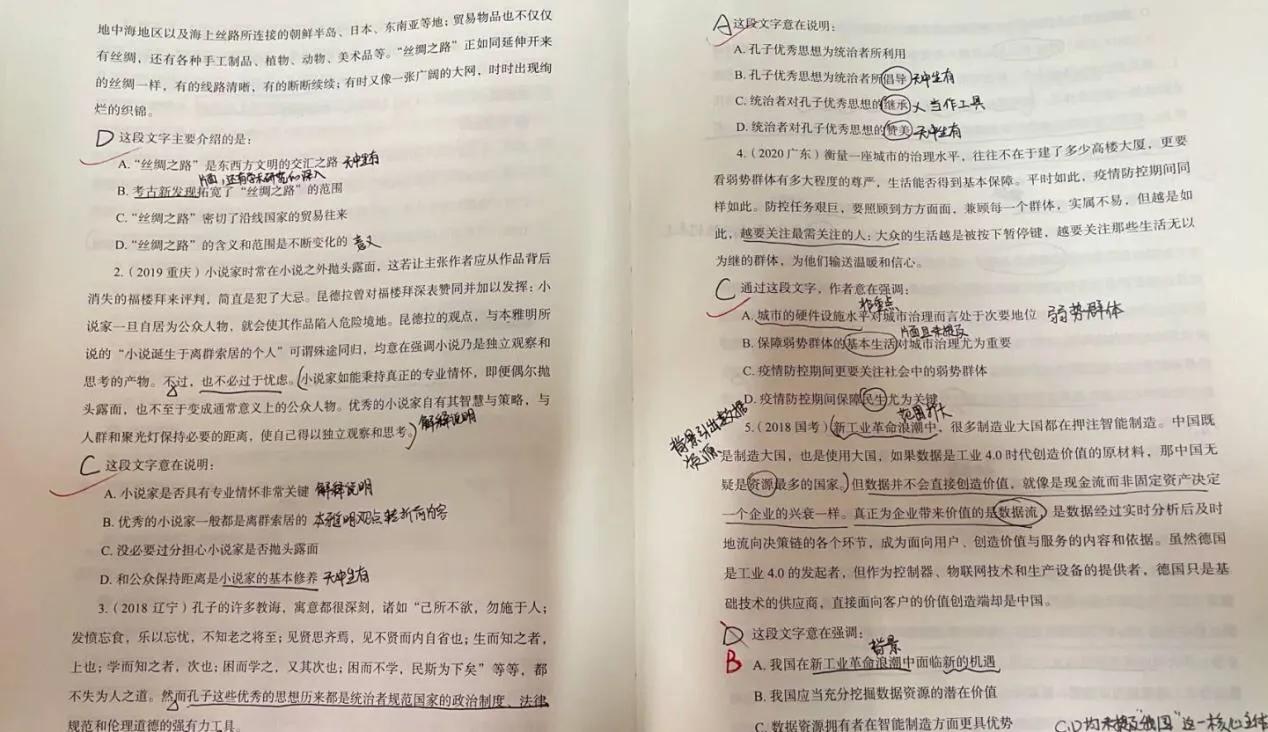 地中海地区以及海上丝路所连接的朝鲜半岛、日本、东南亚等地；贸易物品也不仅仅
有丝绸，还有各种手工制品、植物、动物、美术品等。“丝绸之路”正如同延伸开来
的丝绸一样，有的线路清晰，有的断断续续；有时又像一张广阔的大网，时时出现绚
烂的织锦。
D 这段文字主要介绍的是：
A.“丝绸之路”是东西方文明的交汇之路 无中生有
片面，还有学术研究的深入
B. 考古新发现拓宽了“丝绸之路”的范围
C.“丝绸之路”密切了沿线国家的贸易往来
D.“丝绸之路”的含义和范围是不断变化的 意义
2.（2019 重庆）小说家时常在小说之外抛头露面，这若让主张作者应从作品背后
消失的福楼拜来评判，简直是犯了大忌。昆德拉曾对福楼拜深表赞同并加以发挥：小
说家一旦自居为公众人物，就会使其作品陷入危险境地。昆德拉的观点，与本雅明所
说的“小说诞生于离群索居的个人”可谓殊途同归，均意在强调小说乃是独立观察和
思考的产物。不过，也不必过于忧虑。小说家如能秉持真正的专业情怀，即便偶尔抛
头露面，也不至于变成通常意义上的公众人物。优秀的小说家自有其智慧与策略，与
人群和聚光灯保持必要的距离，使自己得以独立观察和思考。 解释说明
C 这段文字意在说明：
A. 小说家是否具有专业情怀非常关键 解释说明
B. 优秀的小说家一般都是离群索居的 本雅明观点转折前内容
C. 没必要过分担心小说家是否抛头露面
D. 和公众保持距离是小说家的基本修养 无中生有
3.（2018 辽宁）孔子的许多教诲，寓意都很深刻，诸如“己所不欲，勿施于人；
发愤忘食，乐以忘忧，不知老之将至；见贤思齐焉，见不贤而内自省也；生而知之者，
上也；学而知之者，次也；困而学之，又其次也；困而不学，民斯为下矣”等等，都
不失为人之道。然而孔子这些优秀的思想历来都是统治者规范国家的政治制度、法律
规范和伦理道德的强有力工具。
A 这段文字意在说明：
A. 孔子优秀思想为统治者所利用
B. 孔子优秀思想为统治者所倡导 无中生有
C. 统治者对孔子优秀思想的继承 X 当作工具
D. 统治者对孔子优秀思想的赞美 无中生有
4.（2020 广东）衡量一座城市的治理水平，往往不在于建了多少高楼大厦，更要
看弱势群体有多大程度的尊严，生活能否得到基本保障。平时如此，疫情防控期间同
样如此。防控任务艰巨，要照顾到方方面面，兼顾每一个群体，实属不易，但越是如
此，越要关注最需关注的人：大众的生活越是被按下暂停键，越要关注那些生活无以
为继的群体，为他们输送温暖和信心。
C 通过这段文字，作者意在强调：
非重点
A. 城市的硬件设施水平对城市治理而言处于次要地位 弱势群体
片面且未提及
B. 保障弱势群体的基本生活对城市治理尤为重要
C. 疫情防控期间更要关注社会中的弱势群体
D. 疫情防控期间保障民生尤为关键
范围扩大
背景引出数据
资源
5.（2018 国考）新工业革命浪潮中，很多制造业大国都在押注智能制造。中国既
是制造大国，也是使用大国，如果数据是工业 4.0 时代创造价值的原材料，那中国无
疑是资源最多的国家。但数据并不会直接创造价值，就像是现金流而非固定资产决定
一个企业的兴衰一样。真正为企业带来价值的是数据流，是数据经过实时分析后及时
地流向决策链的各个环节，成为面向用户、创造价值与服务的内容和依据。虽然德国
是工业 4.0 的发起者，但作为控制器、物联网技术和生产设备的提供者，德国只是基
础技术的供应商，直接面向客户的价值创造端却是中国。
D 这段文字意在强调：
背景
B A. 我国在新工业革命浪潮中面临新的机遇
B. 我国应当充分挖掘数据资源的潜在价值
C. 数据资源拥有者在智能制造方面更具优势
C、D均未提及“我国”这一核心主体